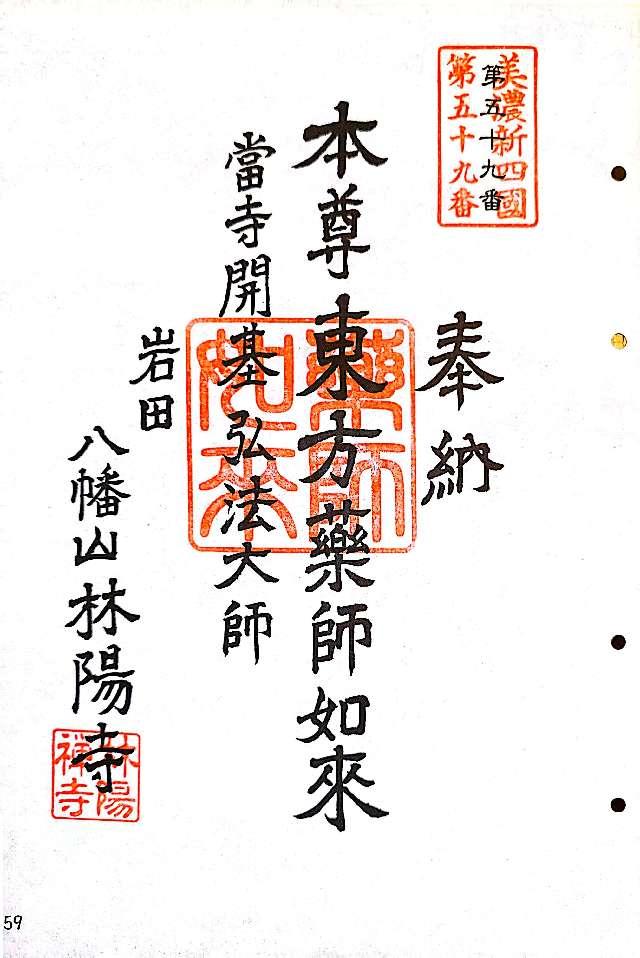 美濃新四國
第五十九番
第五十九番
奉納
本尊東方藥師如來
當寺開基弘法大師
岩田
八幡山林陽寺
林陽
禅寺
59